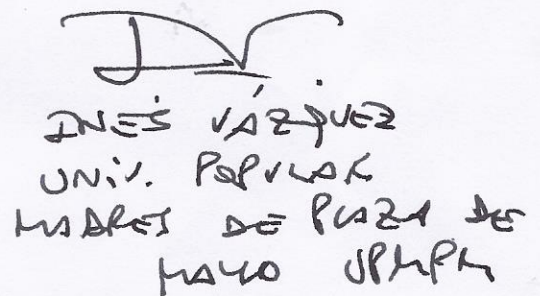 INÉS VÁZQUEZ
UNIV. POPULAR
MADRES DE PLAZA DE
MAYO UPMPM